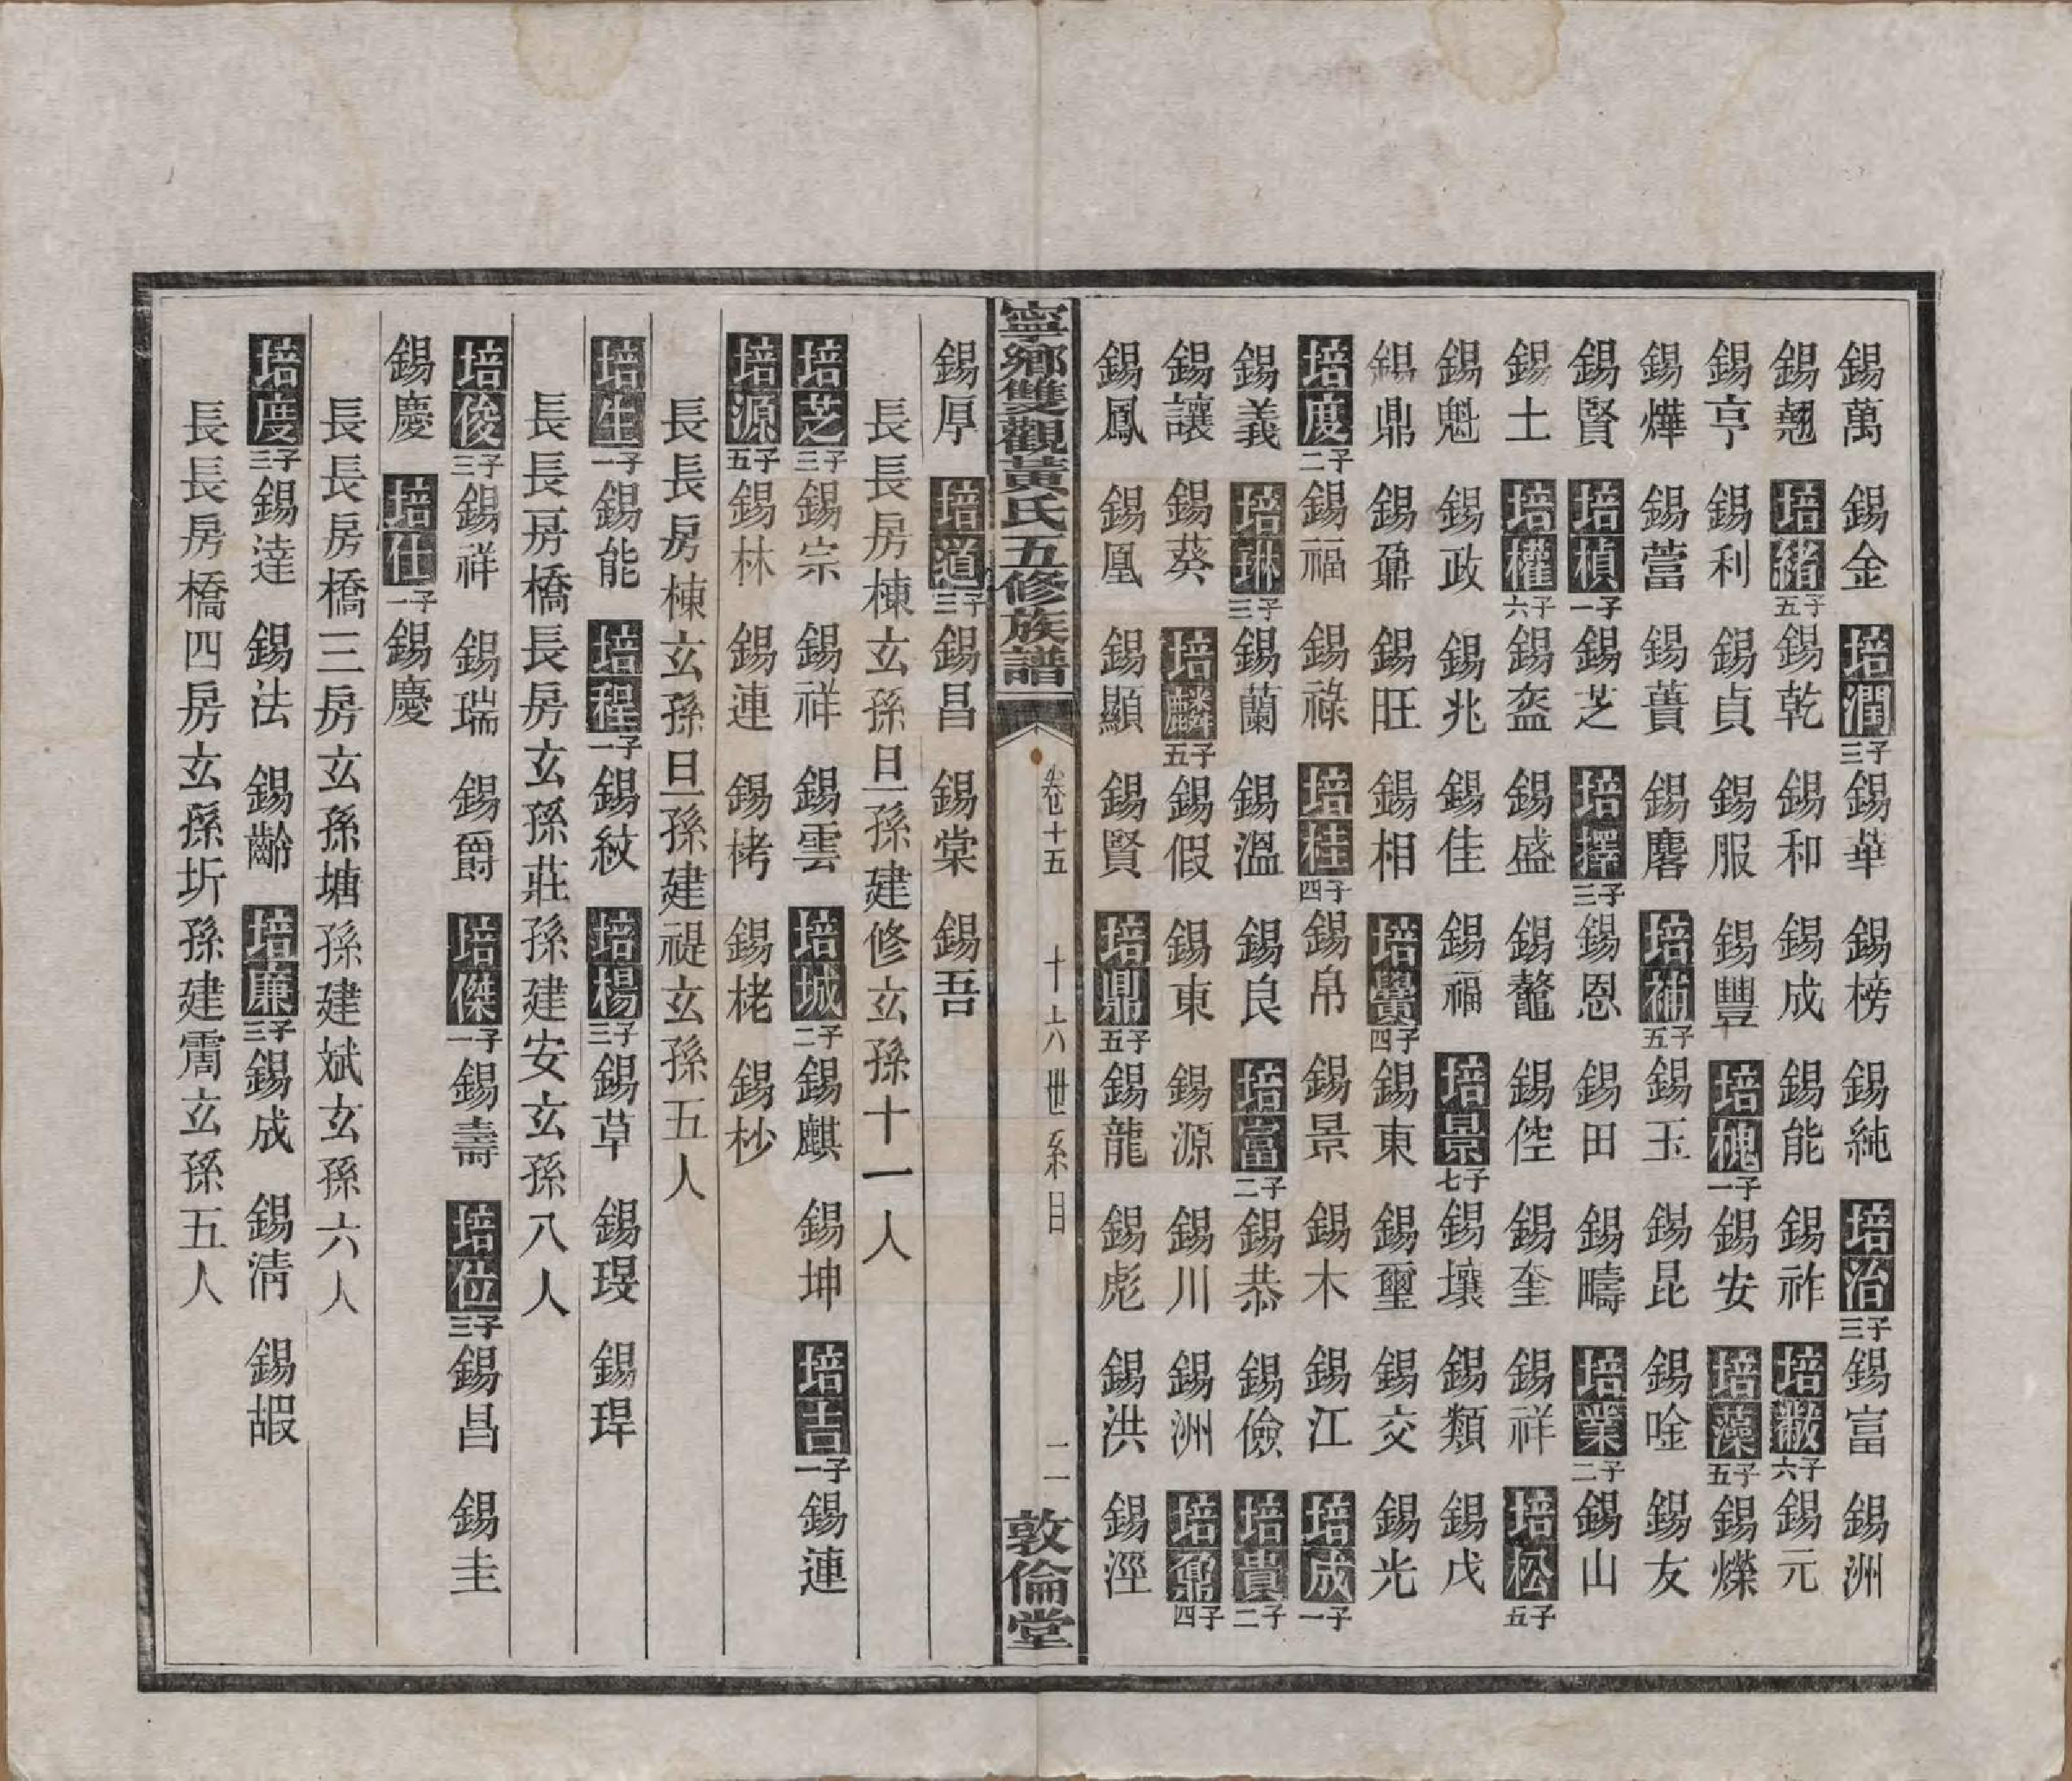 錫萬 錫金 培潤三子 錫華 錫榜 錫純 培治三子 錫富 錫洲
錫翹 培緒五子 錫乾 錫和 錫成 錫能 錫祚 培黻六子 錫元
錫亨 錫利 錫貞 錫服 錫豐 培槐一子 錫安 培藻五子 錫爍
錫燁 錫蓸 錫蕢 錫麐 培補五子 錫玉 錫昆 錫唫 錫友
錫賢 培楨一子 錫芝 培擇三子 錫恩 錫田 錫疇 培業二子 錫山
錫土 培權六子 錫盔 錫盛 錫鼇 錫倥 錫奎 錫祥 培松五子
錫魁 錫政 錫兆 錫佳 錫福 培景七子 錫壤 錫類 錫戊
錫鼎 錫鼐 錫旺 錫相 培黌四子 錫東 錫璽 錫交 錫光
培度二子 錫福 錫祿 培桂四子 錫帛 錫景 錫木 錫江 培成一子
錫義 培琳三子 錫蘭 錫溫 錫良 培富二子 錫恭 錫儉 培貴二子
錫讓 錫葵 培麟五子 錫假 錫東 錫源 錫川 錫洲 培鼐四子
錫鳳 錫凰 錫顯 錫賢 培鼎五子 錫龍 錫彪 錫洪 錫涇
寧鄉雙觀黃氏五修族譜 卷十五 十六世系目 二 敦倫堂
錫厚 培道三子 錫昌 錫棠 錫吾
長長房棟玄孫旦孫建修玄孫十一人
培芝三子 錫宗 錫祥 錫雲 培城二子 錫麒 錫坤 培吉一子 錫連
培源五子 錫林 錫連 錫栲 錫栳 錫杪
長長房棟玄孫旦孫建禔玄孫五人
培生一子 錫能 培程一子 錫紋 培楊三子 錫草 錫琝 錫琾
長長房橋長房玄孫莊孫建安玄孫八人
培俊三子 錫祥 錫瑞 錫爵 培傑一子 錫壽 培位三子 錫昌 錫圭
錫慶 培仕一子 錫慶
長長房橋三房玄孫塘孫建斌玄孫六人
培度三子 錫達 錫法 錫齡 培廉三子 錫成 錫清 錫嘏
長長房橋四房玄孫圻孫建霌玄孫五人